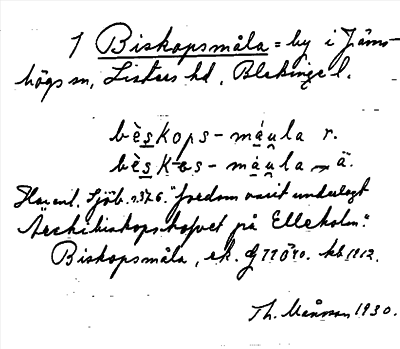 1 Biskopsmåla = by i Jäms-
högs sn, Listers hd, Blekinge l.
bèskops-màula r.
bèskǝs-màula ä.
Har enl. Sjöb. s. 376. "fordom varit underlagt
Ærchibiskopshofvet på Elleholm."
Biskopsmåla, ek. kb 1812.
Th. Månsson 1930.